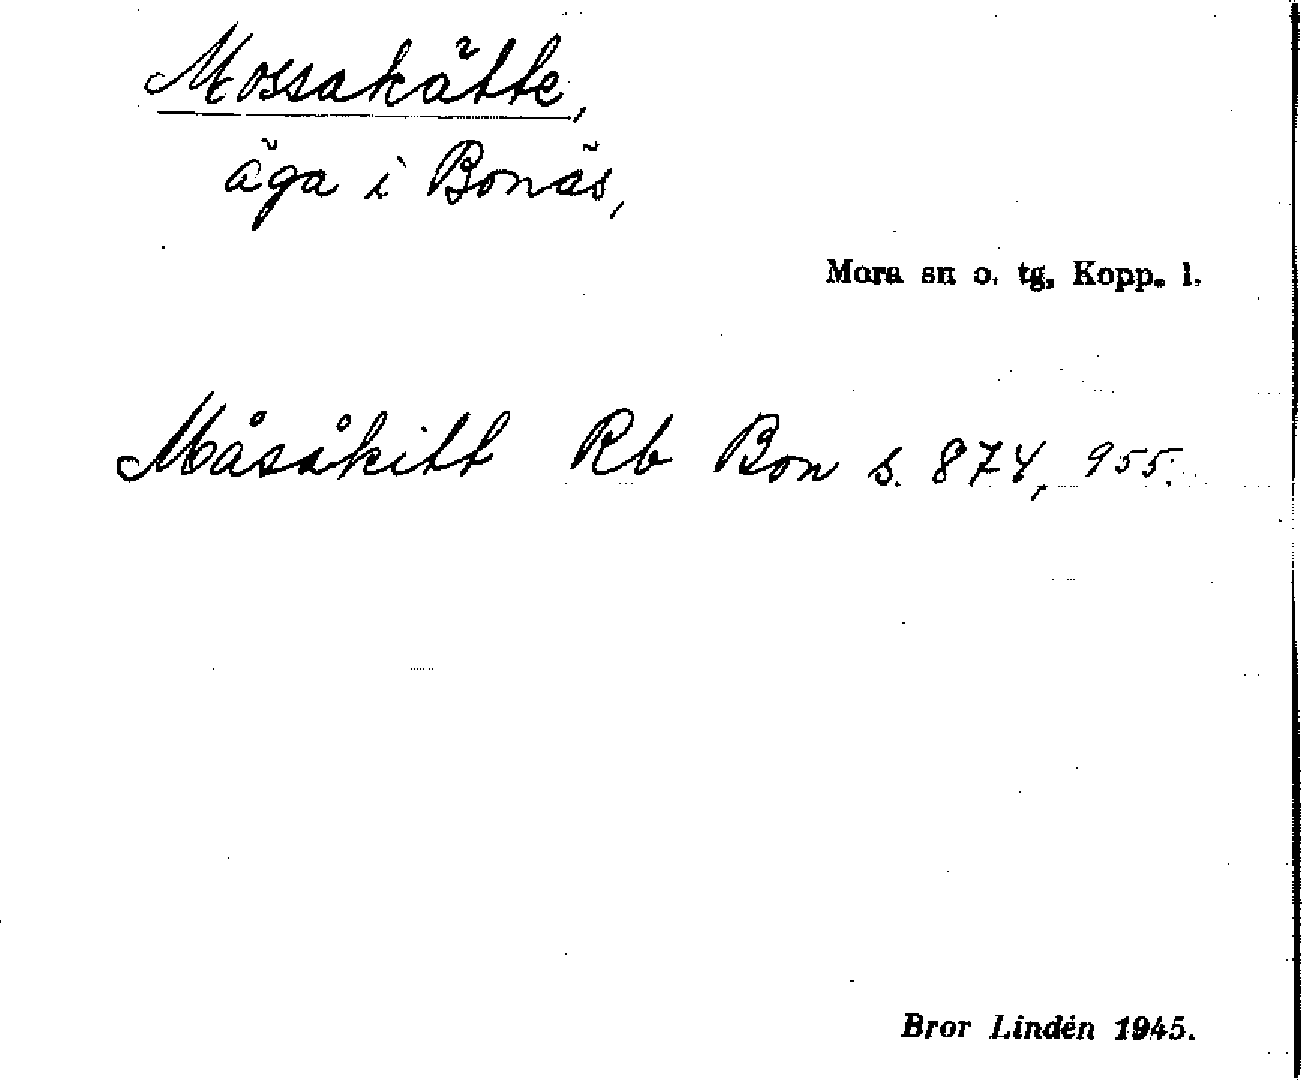 Mossakätte,
äga i Bonäs,
Mora sn o. tg, Kopp. l.
Måsåkitt Rb Bon s. 874, 955.
Bror Lindén 1945.